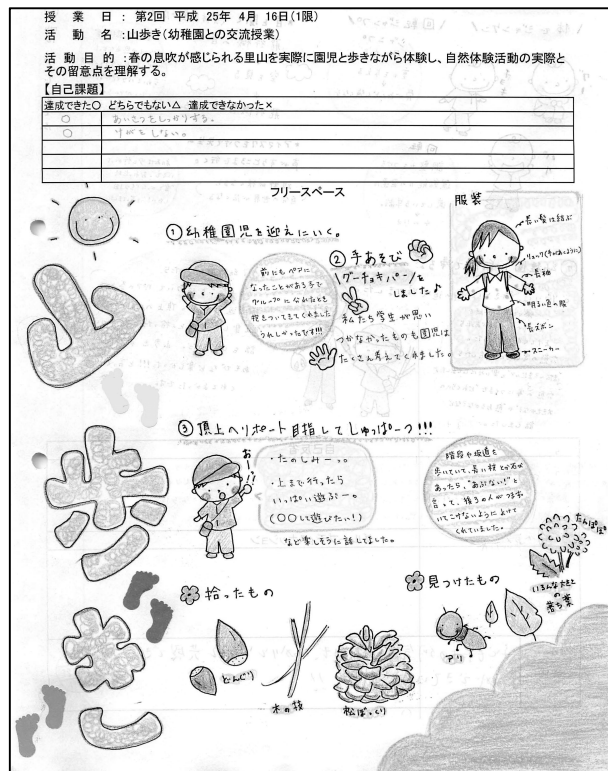 授業日：第2回 平成 25年 4月 16日(1限)
活動名：山歩き(幼稚園との交流授業)
活動目的：春の息吹が感じられる里山を実際に園児と歩きながら体験し、自然体験活動の実際と
その留意点を理解する。
【自己課題】
達成できた○ どちらでもない△ 達成できなかった×
○ あいさつをしっかりする。
○ けがをしない。
フリースペース
山歩きし
①幼稚園児を迎えにいく。
前にもペアに
なったことがある子で
グループになれたとき
抱きついてきてくれました
うれしかったです!!!
②手あそび
グーチョキパーン を
しました♪
私たち学生が思い
つかなかったものも園児は
たくさん考えてくれました。
服装
長い髪は結ぶ
リュック(手があくように)
長袖
明るい色の服
長ズボン
スニーカー
③頂上ヘリポート目指してしゅっぱーつ!!!
おー!
・たのしみーっ。
・上まで行ったら
いっぱい遊ぶー。
(○○して遊びたい!)
など楽しそうに話してました。
階段や坂道を
歩いていて、長い枝とか石が
あったら、"あぶない!"と
言って、後ろの人がつまず
いてこけないようによけて
くれていました。
拾ったもの
どんぐり
木の枝
松ぼっくり
見つけたもの
アリ
たんぽぽ
いろんな大きさの
落ち葉